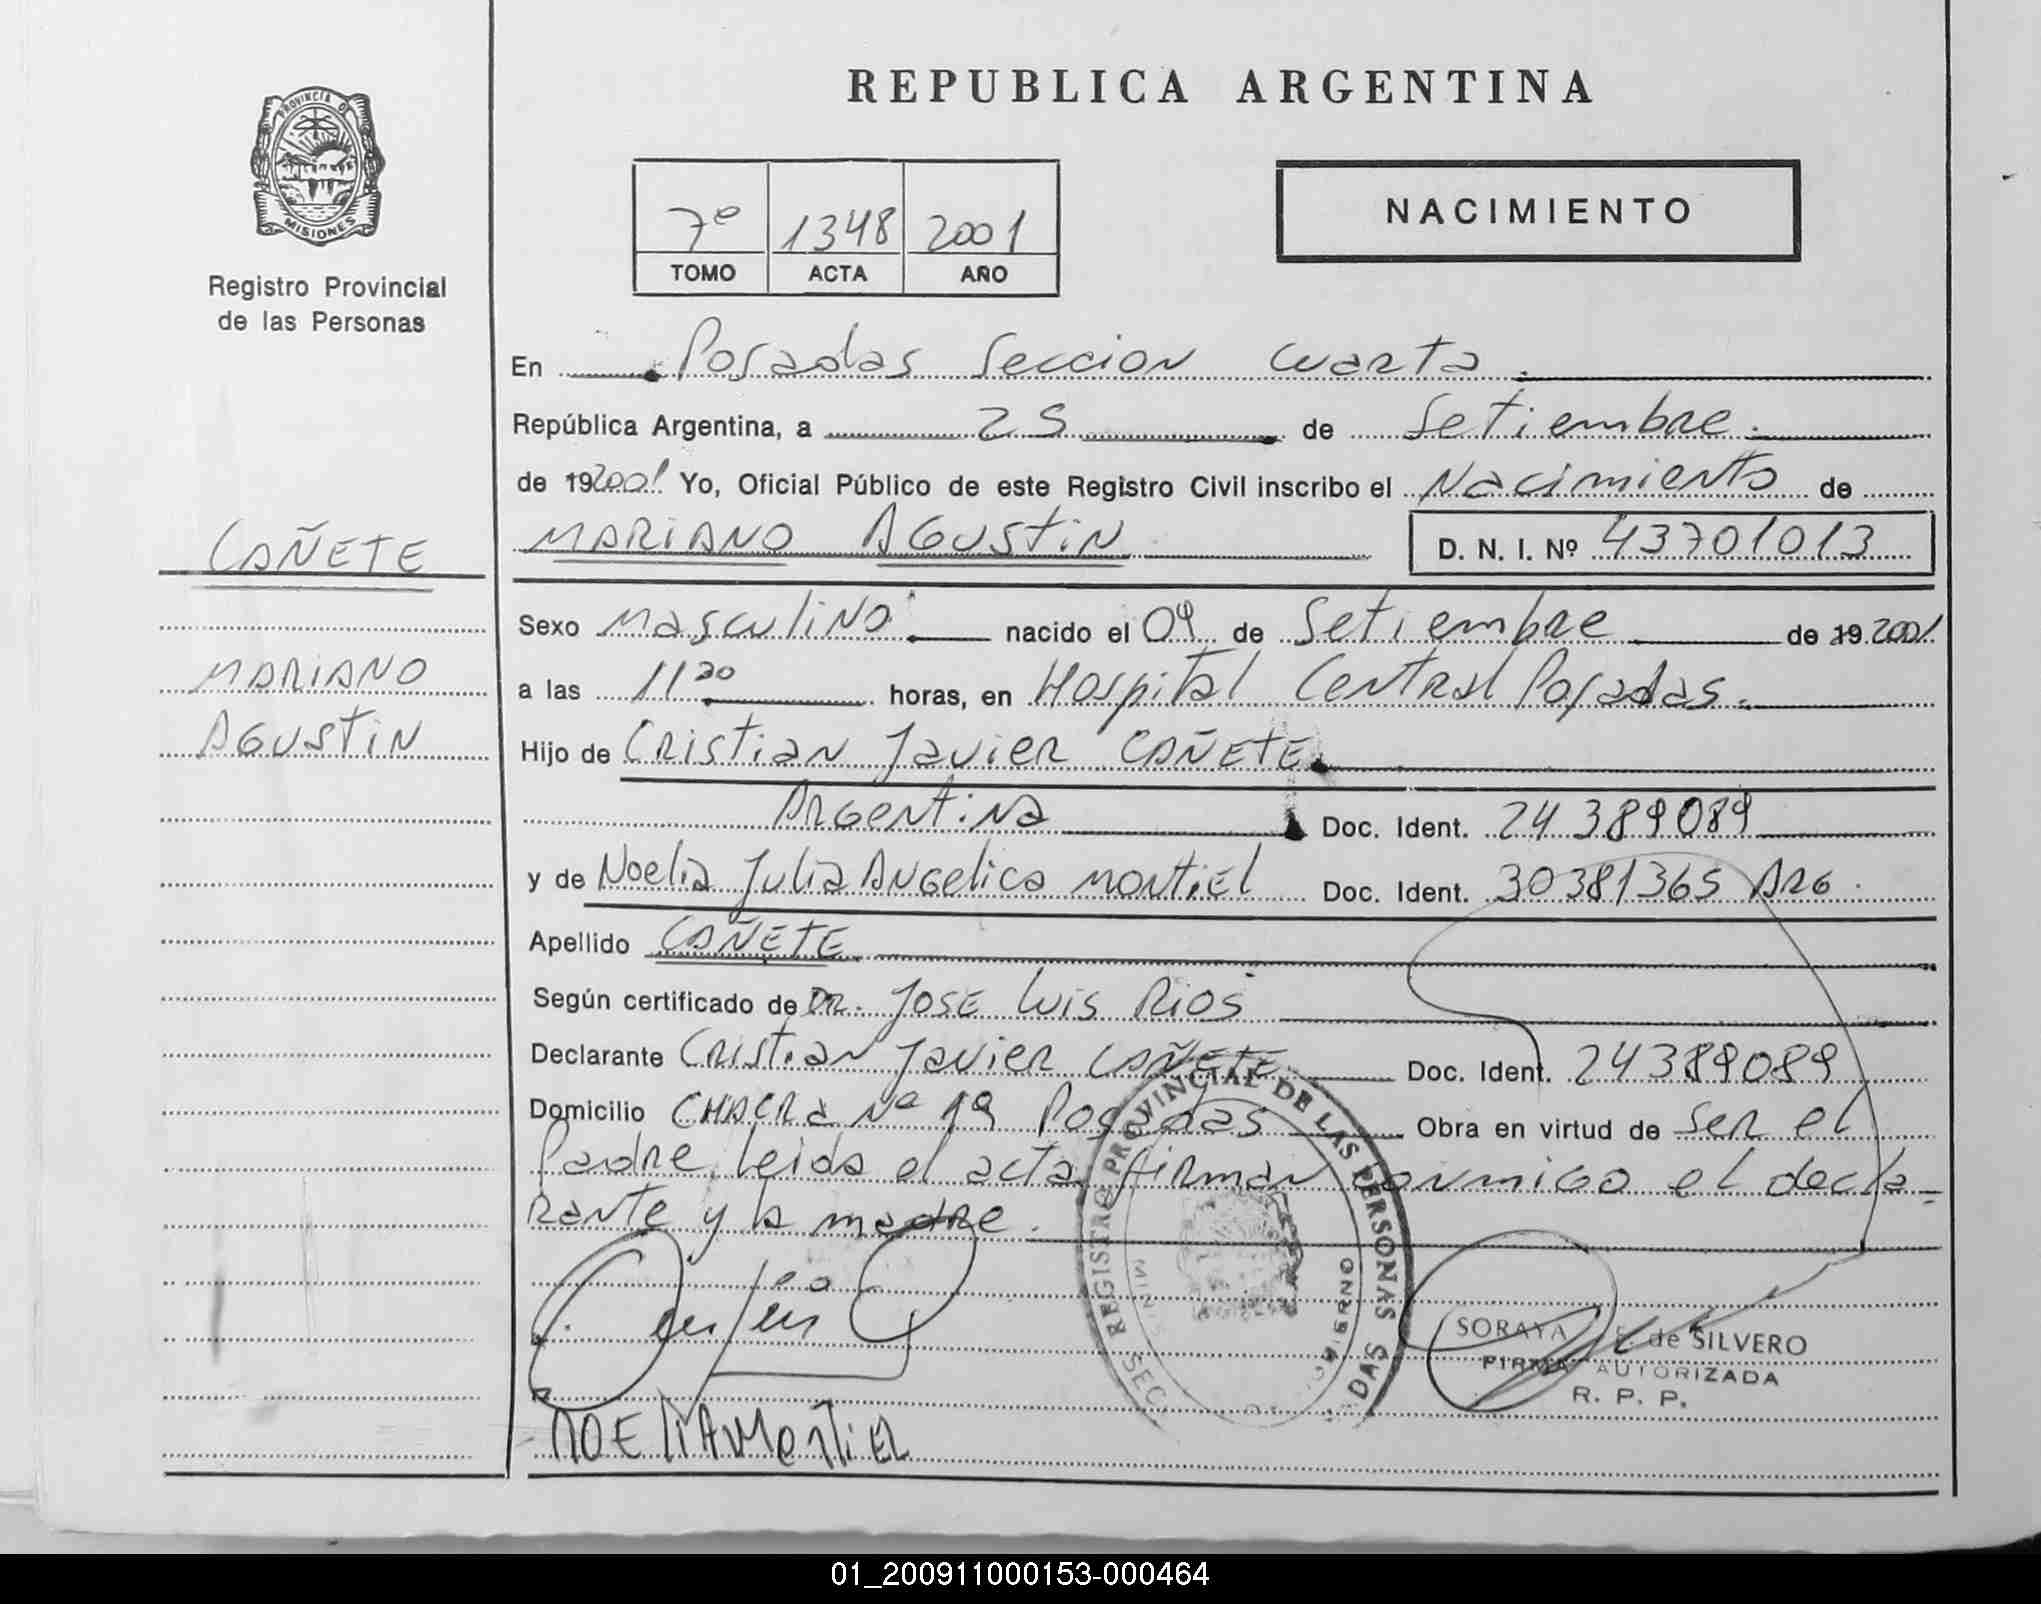 REPUBLICA ARGENTINA
PROVINCIA D
MISIONES
Registro Provincial
de las Personas
7º 1348 2001
TOMO ACTA AÑO
NACIMIENTO
En Posadas Seccion Cuarta.
República Argentina, a 25 de Setiembre.
de 192001 Yo, Oficial Público de este Registro Civil inscribo el Nacimiento de
MARIANO AGUSTIN D. N. I. Nº 43701013
CAÑETE
MARIANO
AGUSTIN
Sexo Masculino. nacido el 09 de Setiembre de 19 2001
a las 11 30 horas, en Hospital Central Posadas.
Hijo de Cristian Javier CAÑETE.
Argentina Doc. Ident. 24 389089
y de Noelia Julia Angelica Montiel Doc. Ident. 30381365 Arg.
Apellido CAÑETE
Según certificado de DR. Jose Luis Rios
Declarante Cristian Javier CAÑETE Doc. Ident. 24389089
Domicilio CHACRA Nº 19 Posadas Obra en virtud de Ser el
Padre, leida el acta firman conmigo el decla-
rante y la madre.
REGISTRO PROVINCIAL DE LAS PERSONAS
SORAYA E. de SILVERO
FIRMA AUTORIZADA
R. P. P.
NOELIA MONTIEL
01_200911000153-000464